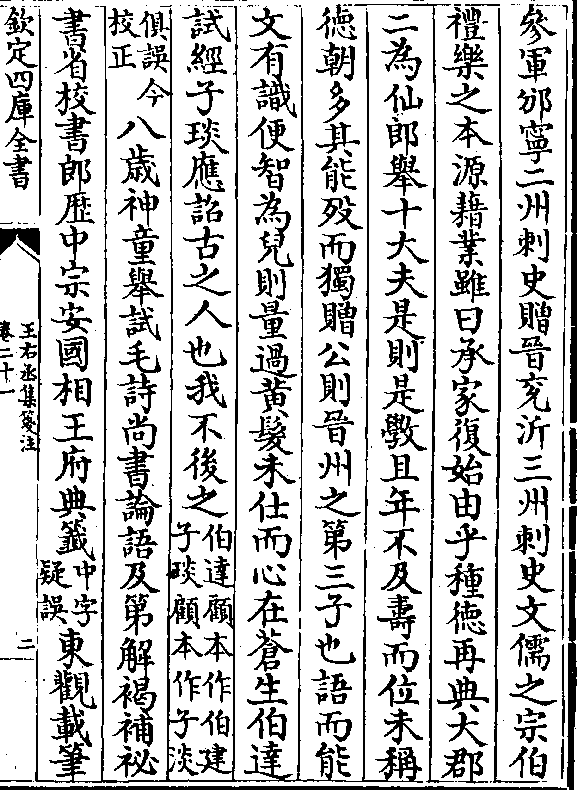 參軍邠寧二州刺史贈晉兖沂三州刺史文儒之宗伯
禮樂之本源藉業雖曰承家復始由乎種德再典大郡
二為仙郎舉十大夫是則是斆且年不及壽而位未稱
德朝多其能殁而獨贈公則晉州之第三子也語而能
文有識便智為兒則量過黄髮未仕而心在蒼生伯達
試經子琰應詔古之人也我不後之伯達顧本作伯建
子琰顧本作子淡
俱誤
校正今八歳神童舉試毛詩尚書論語及第解褐補祕
書省校書郎歴中宗安國相王府典籖中字
疑誤東觀載筆
欽定四庫全書
王右丞集箋注
卷二十一
二